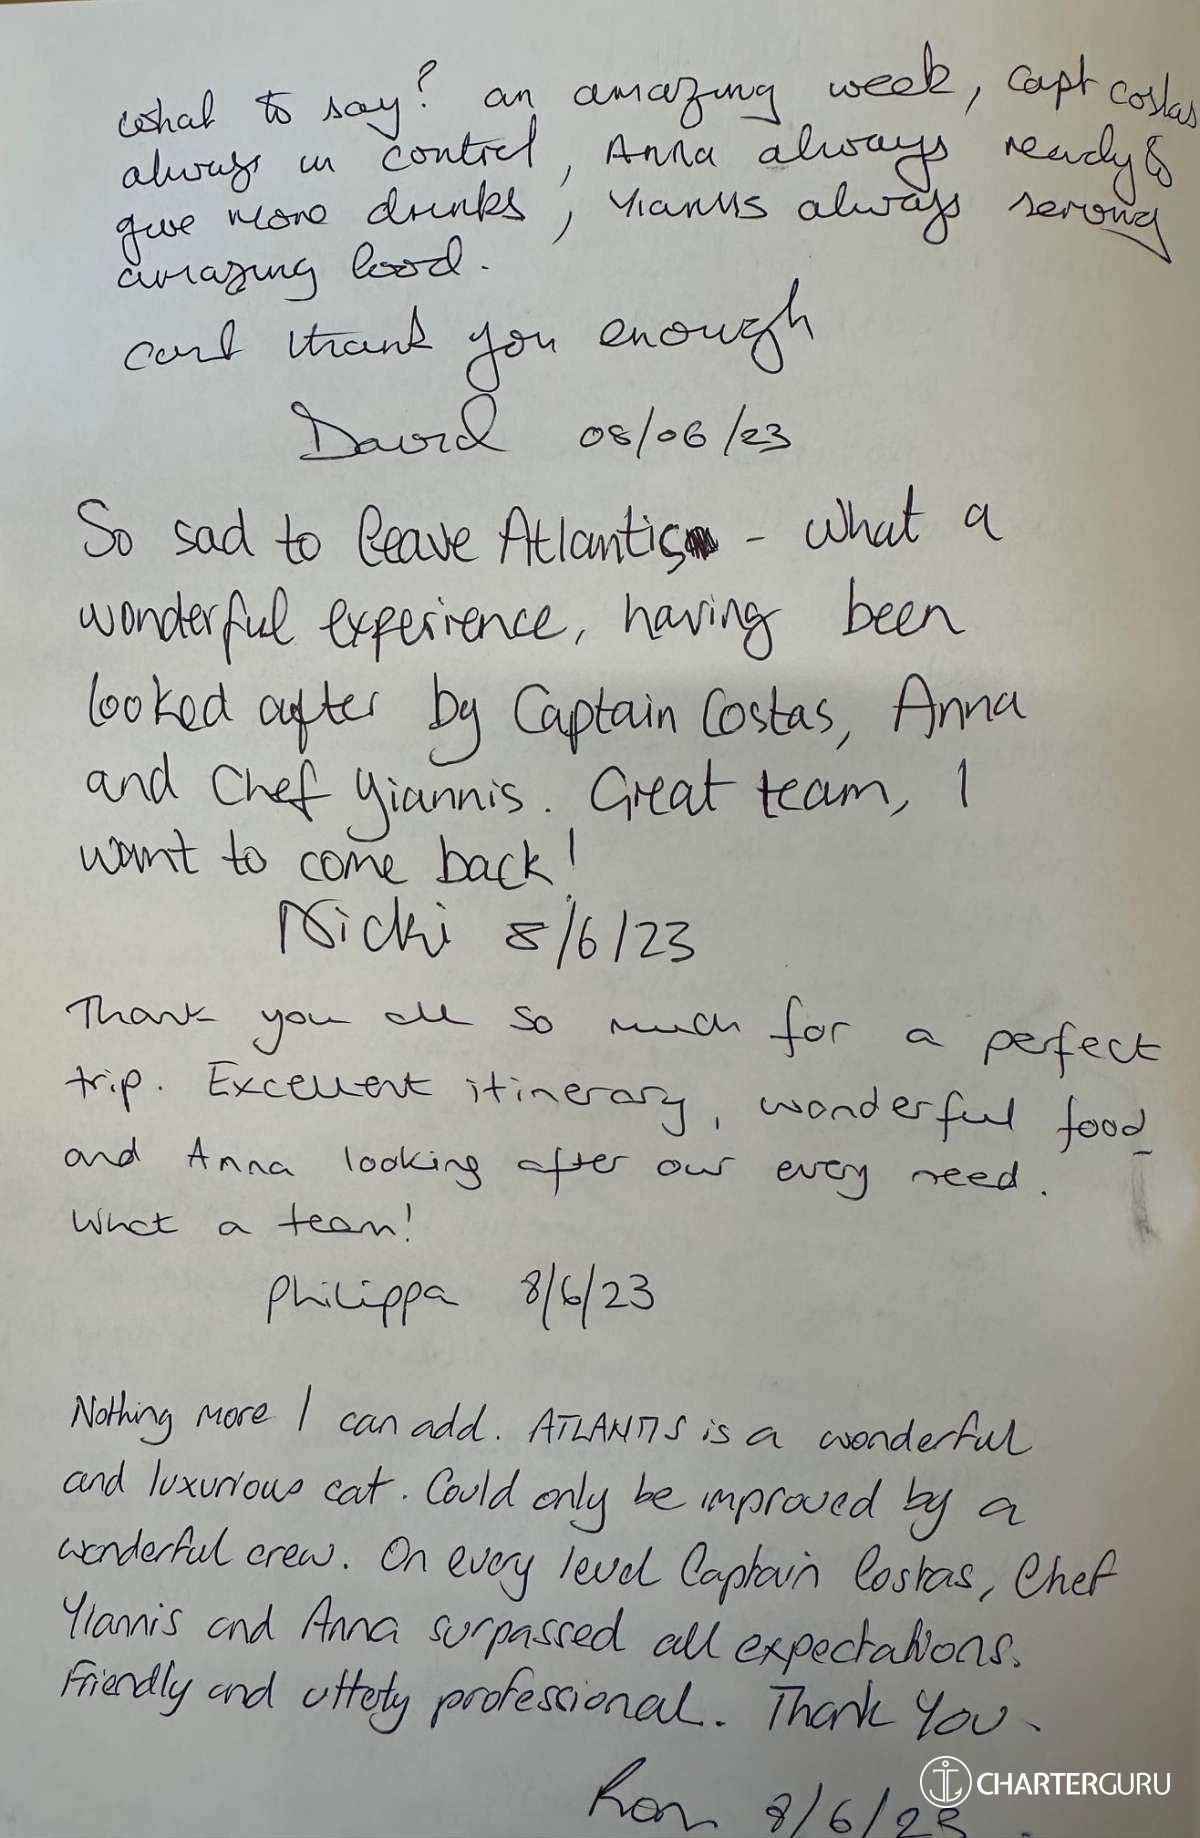 What to say? an amazing week, Capt Costas
always in control, Anna always ready to
give more drinks, Yiannis always serving
amazing food.
cant thank you enough
David 08/06/23
So sad to leave Atlantis - what a
wonderful experience, having been
looked after by Captain Costas, Anna
and Chef Yiannis. Great team, I
want to come back!
Nicki 8/6/23
Thank you all so much for a perfect
trip. Excellent itinerary, wonderful food
and Anna looking after our every need.
What a team!
Philippa 8/6/23
Nothing more I can add. ATLANTIS is a wonderful
and luxurious cat. Could only be improved by a
wonderful crew. On every level Captain Costas, Chef
Yiannis and Anna surpassed all expectations.
Friendly and utterly professional. Thank You.
Ron 8/6/23
CHARTERGURU